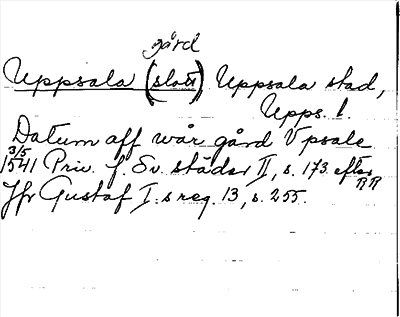 gård
Uppsala (slott) Uppsala stad,
Upps. l.
Datum aff wår gård Vpsale
3/5
1541 Priv. f. Sv. städer II, s. 173. efter
RR
Jfr Gustaf I:s reg. 13, s. 255.